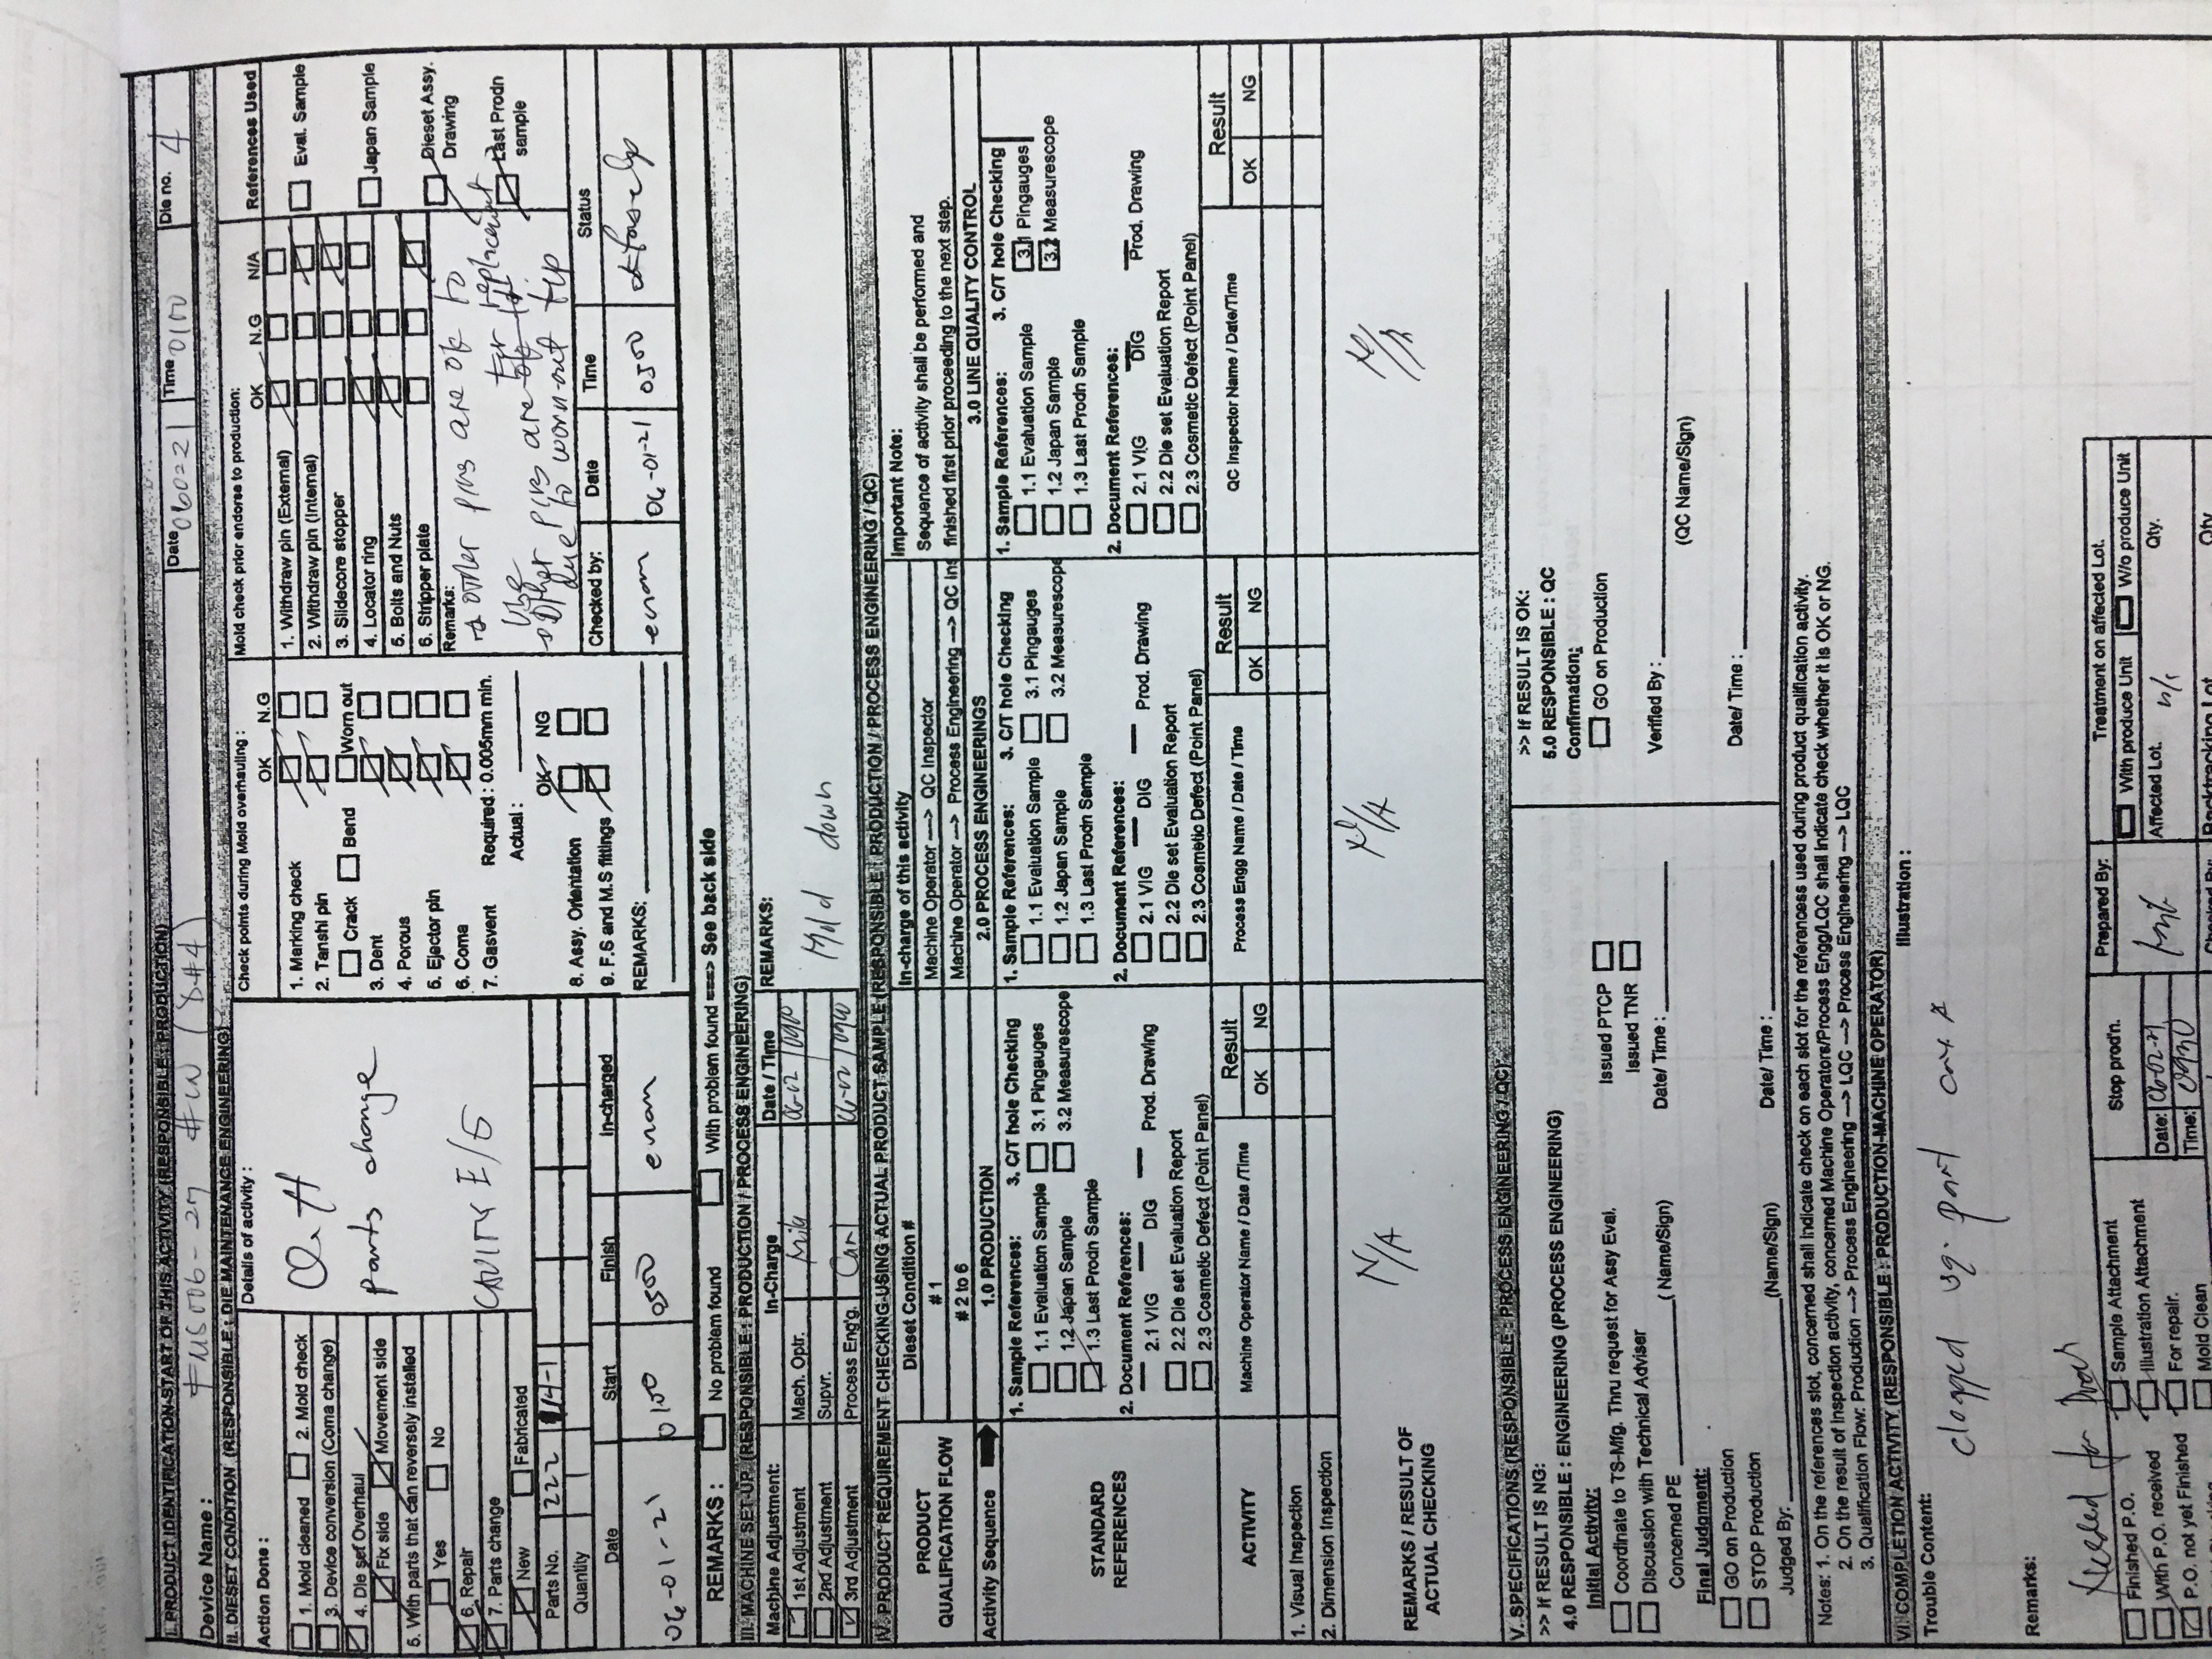 I. PRODUCT IDENTIFICATION-START OF THIS ACTIVITY (RESPONSIBLE : PRODUCTION)
Device Name : FMS006-27 #IN (D#4) Date Time 0100 Die no. 4
II. DIESET CONDITION (RESPONSIBLE : DIE MAINTENANCE ENGINEERING)
Action Done :
1. Mold cleaned 2. Mold check
3. Device conversion (Coma change)
4. Die set Overhaul
Fix side Movement side
5. With parts that can reversely installed
Yes No
6. Repair
7. Parts change
New Fabricated
Parts No. 222 14-1
Quantity 1
Details of activity :
O.H
parts change
CAVITY E/G
Date Start Finish In-charged
06-01-21 0100 0500 enan
Check points during Mold overhauling :
OK N.G
1. Marking check
2. Tanshi pin
Crack Bend Worn out
3. Dent
4. Porous
5. Ejector pin
6. Coma
7. Gasvent Required : 0.005mm min.
Actual :
OK NG
8. Assy. Orientation
9. F.S and M.S fittings
REMARKS:
Mold check prior endorse to production:
OK N.G N/A
1. Withdraw pin (External)
2. Withdraw pin (Internal)
3. Slidecore stopper
4. Locator ring
5. Bolts and Nuts
6. Stripper plate
Remarks:
→ other pins are ok to
use
→ Other pins are for replacement
due to worn-out tip
Checked by: Date Time Status
enan 06-01-21 0500
References Used
Eval. Sample
Japan Sample
Dieset Assy.
Drawing
Last Prodn
sample
REMARKS : No problem found With problem found ===> See back side
III. MACHINE SET-UP (RESPONSIBLE : PRODUCTION / PROCESS ENGINEERING)
Machine Adjustment: In-Charge Date / Time REMARKS:
1st Adjustment Mach. Optr. 06-02 / 0900
2nd Adjustment Supvr.
3rd Adjustment Process Eng'g. Carl 06-02 / 0900
Mold down
IV. PRODUCT REQUIREMENT CHECKING-USING ACTUAL PRODUCT SAMPLE (RESPONSIBLE : PRODUCTION / PROCESS ENGINEERING / QC)
PRODUCT
QUALIFICATION FLOW
Dieset Condition #
# 1
# 2 to 6
In-charge of this activity
Machine Operator ---> QC Inspector
Machine Operator ---> Process Engineering ---> QC Ins
Important Note:
Sequence of activity shall be performed and
finished first prior proceeding to the next step.
Activity Sequence 1.0 PRODUCTION 2.0 PROCESS ENGINEERINGS 3.0 LINE QUALITY CONTROL
STANDARD
REFERENCES
1. Sample References: 3. C/T hole Checking
1.1 Evaluation Sample 3.1 Pingauges
1.2 Japan Sample 3.2 Measurescope
1.3 Last Prodn Sample
2. Document References:
2.1 VIG DIG Prod. Drawing
2.2 Die set Evaluation Report
2.3 Cosmetic Defect (Point Panel)
1. Sample References: 3. C/T hole Checking
1.1 Evaluation Sample 3.1 Pingauges
1.2 Japan Sample 3.2 Measurescope
1.3 Last Prodn Sample
2. Document References:
2.1 VIG DIG Prod. Drawing
2.2 Die set Evaluation Report
2.3 Cosmetic Defect (Point Panel)
1. Sample References: 3. C/T hole Checking
1.1 Evaluation Sample 3.1 Pingauges
1.2 Japan Sample 3.2 Measurescope
1.3 Last Prodn Sample
2. Document References:
2.1 VIG DIG Prod. Drawing
2.2 Die set Evaluation Report
2.3 Cosmetic Defect (Point Panel)
ACTIVITY Machine Operator Name / Date /Time Result OK NG Process Engg Name / Date / Time Result OK NG QC Inspector Name / Date/Time Result OK NG
1. Visual Inspection
2. Dimension Inspection
REMARKS / RESULT OF
ACTUAL CHECKING
N/A N/A N/A
V. SPECIFICATIONS (RESPONSIBLE : PROCESS ENGINEERING / QC)
>> If RESULT IS NG:
4.0 RESPONSIBLE : ENGINEERING (PROCESS ENGINEERING)
Initial Activity:
Coordinate to TS-Mfg. Thru request for Assy Eval. Issued PTCP
Discussion with Technical Adviser Issued TNR
Concerned PE ( Name/Sign) Date/ Time :
Final Judgment:
GO on Production
STOP Production
Judged By: (Name/Sign) Date/ Time :
>> If RESULT IS OK:
5.0 RESPONSIBLE : QC
Confirmation:
GO on Production
Verified By :
(QC Name/Sign)
Date/ Time :
Notes: 1. On the references slot, concerned shall indicate check on each slot for the referencess used during product qualification activity.
2. On the result of Inspection activity, concerned Machine Operators/Process Engg/LQC shall indicate check whether it is OK or NG.
3. Qualification Flow: Production ---> Process Engineering ---> LQC ---> Process Engineering ---> LQC
VI. COMPLETION ACTIVITY (RESPONSIBLE : PRODUCTION-MACHINE OPERATOR)
Trouble Content: Illustration :
clogged part
Remarks:
Needed for
Finished P.O. Sample Attachment
With P.O. received Illustration Attachment
P.O. not yet Finished For repair.
Mold Clean
Stop prod'n.
Date: 06-02-21
Time: 0930
Prepared By:
Treatment on affected Lot.
With produce Unit W/o produce Unit
Affected Lot. Qty.
Backtracking Lot Qty